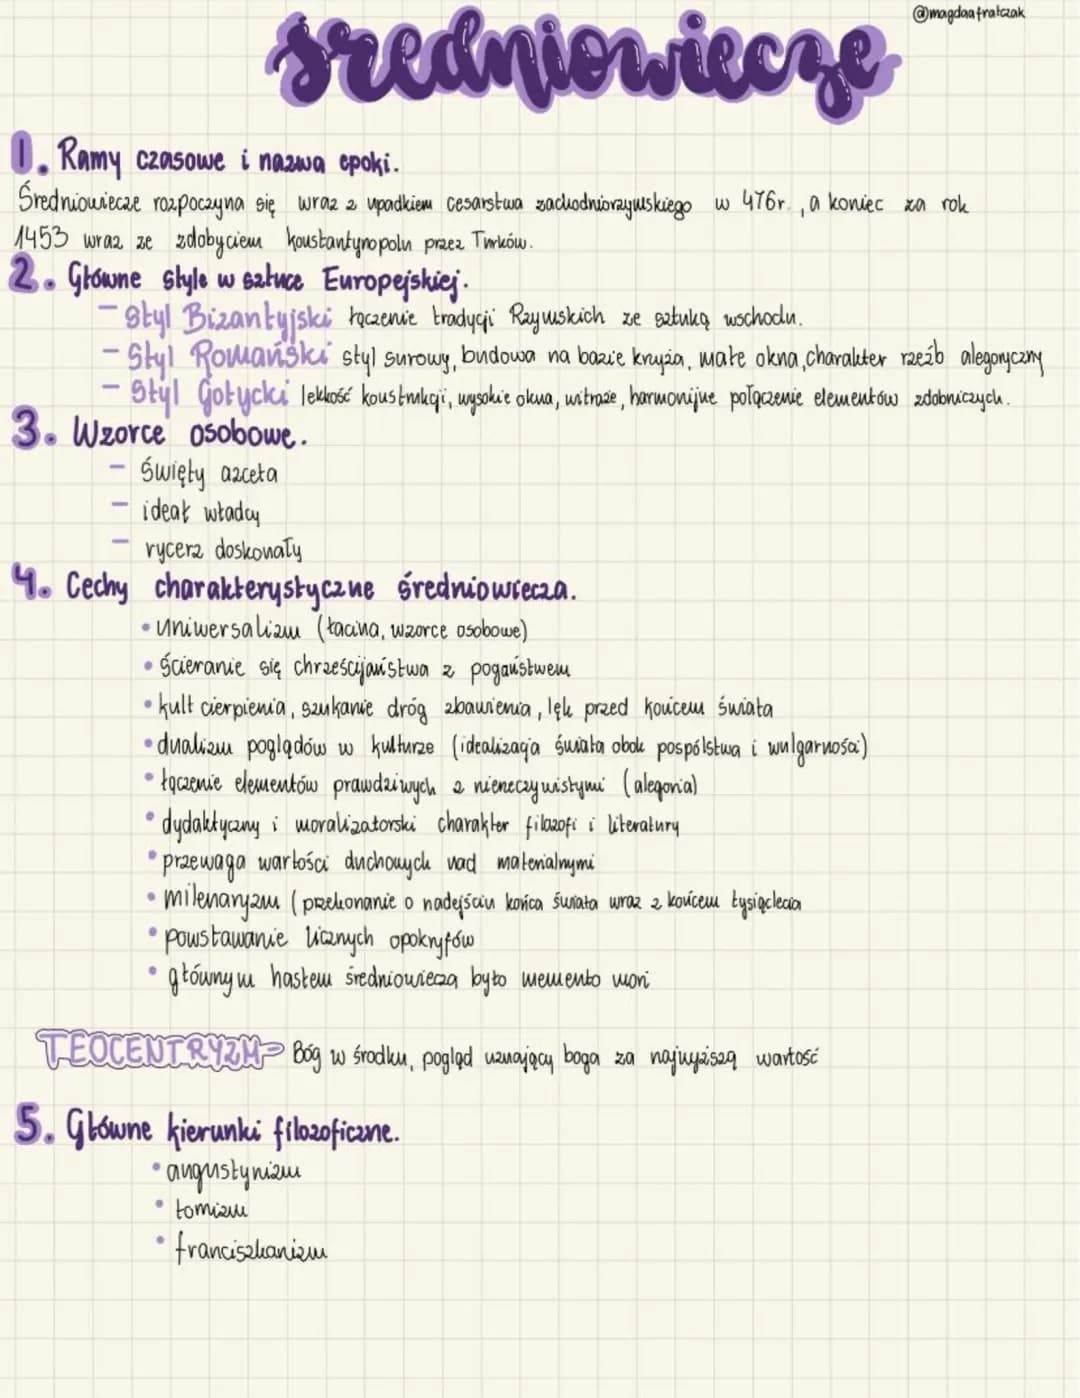 @magdaafratczak
średniowiecze
1. Ramy czasowe i nazwa epoki.
Średniowiecze rozpoczyna się wraz z upadkiem cesarstwa zachodniorzymskiego w 476r., a koniec za rok
1453 wraz ze zdobyciem konstantynopolu przez Turków.
2. Główne style w sztuce Europejskiej.
- Styl Bizantyjski łączenie tradycji Rzymskich ze sztuką wschodu.
- Styl Romański styl surowy, budowa na bazie krzyża, małe okna, charakter rzeźb alegoryczny
- Styl Gotycki lekkość konstrukcji, wysokie okna, witraże, harmonijne połączenie elementów zdobniczych.
3. Wzorce osobowe.
- święty azceta
- ideał władcy
- rycerz doskonały
4. Cechy charakterystyczne średniowiecza.
• uniwersalizm (łacina, wzorce osobowe)
• ścieranie się chrześcijaństwa z pogaństwem
• kult cierpienia, szukanie dróg zbawienia, lęk przed końcem świata
• dualizm poglądów w kulturze (idealizacja świata obok pospólstwa i wulgarności)
• łączenie elementów prawdziwych z nierzeczywistymi (alegoria)
• dydaktyczny i moralizatorski charakter filozofi i literatury
• przewaga wartości duchowych nad materialnymi
• milenaryzm (przekonanie o nadejściu końca świata wraz z końcem tysiąclecia
• powstawanie licznych opokryfów
• głównym hasłem średniowiecza było memento mori
TEOCENTRYZM- Bóg w środku, pogląd uznający boga za najwyższą wartość
5. Główne kierunki filozoficzne.
• augustynizm
• tomizm
• franciszkanizm